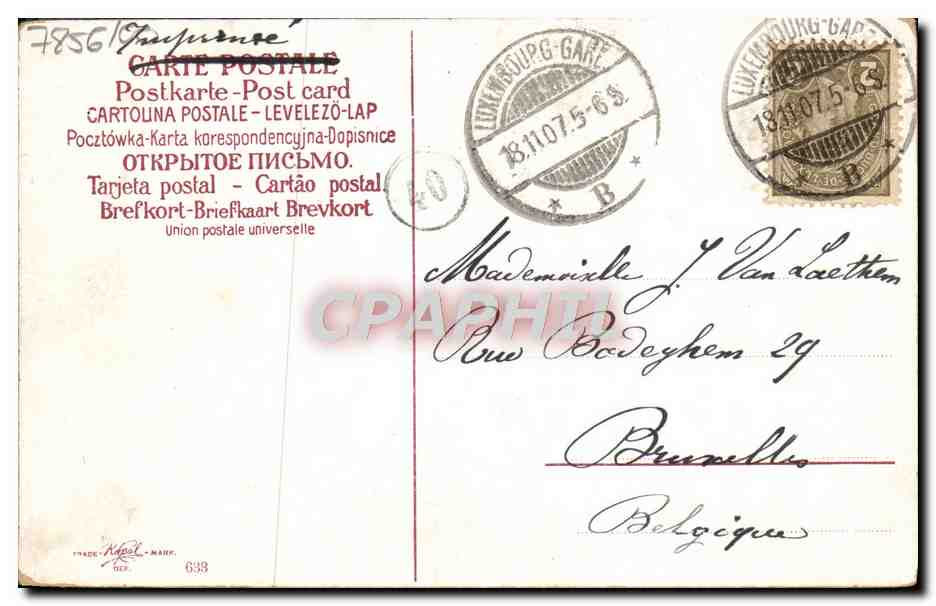 7856/
Imprimé
CARTE POSTALE
Postkarte-Post card
CARTOLINA POSTALE - LEVELEZŐ-LAP
Pocztówka-Karta korespondencyjna-Dopisnice
ОТКРЫТОЕ ПИСЬМО.
Tarjeta postal - Cartão postal
Brefkort-Briefkaart Brevkort
Union postale universelle
40
LUXEMBOURG-GARE
18.11.07.5-6 S.
* B *
LUXEMBOURG-GARE
18.11.07.5-6 S.
B *
2
Mademoiselle J. Van Laethem
Rue Bodeghem 29
Bruxelles
Belgique
CPAPHIL
TRADE - MARK.
DEP.
633